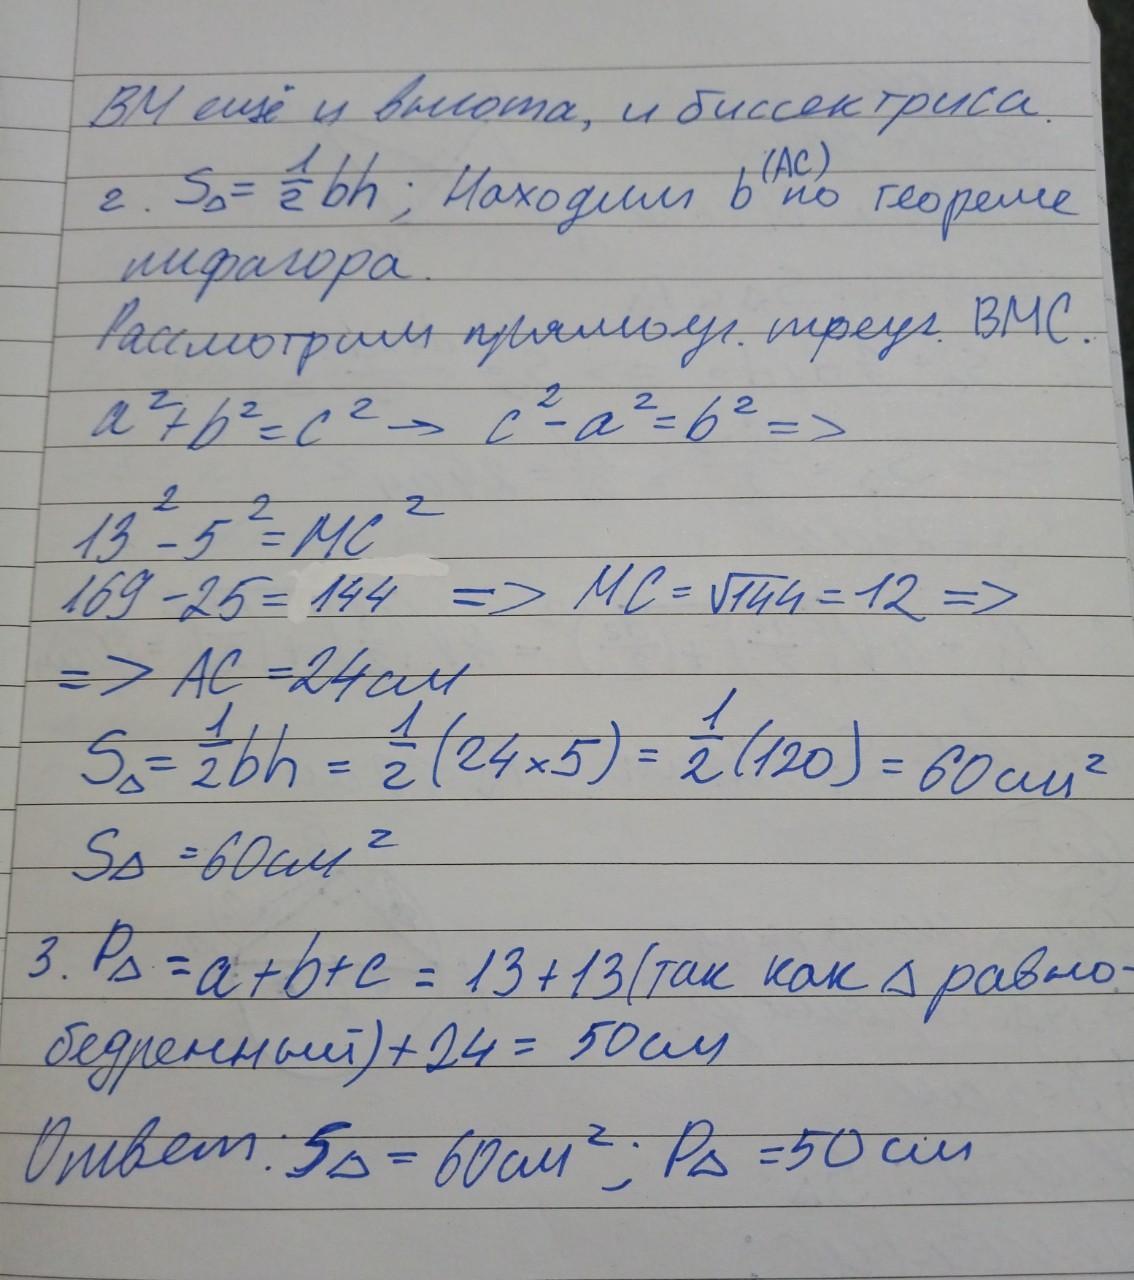 ВМ ещё и высота, и биссектриса.
2. S△ = 1/2 bh; Находим b (АС) по теореме
пифагора.
Рассмотрим прямоуг. треуг. ВМС.
a² + b² = c² → c² - a² = b² =>
13² - 5² = МС²
169 - 25 = 144 => МС = √144 = 12 =>
=> АС = 24 см
S△ = 1/2 bh = 1/2 (24 × 5) = 1/2 (120) = 60 см²
S△ = 60 см²
3. P△ = a + b + c = 13 + 13 (так как △ равно-
бедренный) + 24 = 50 см
Ответ: S△ = 60 см²; P△ = 50 см